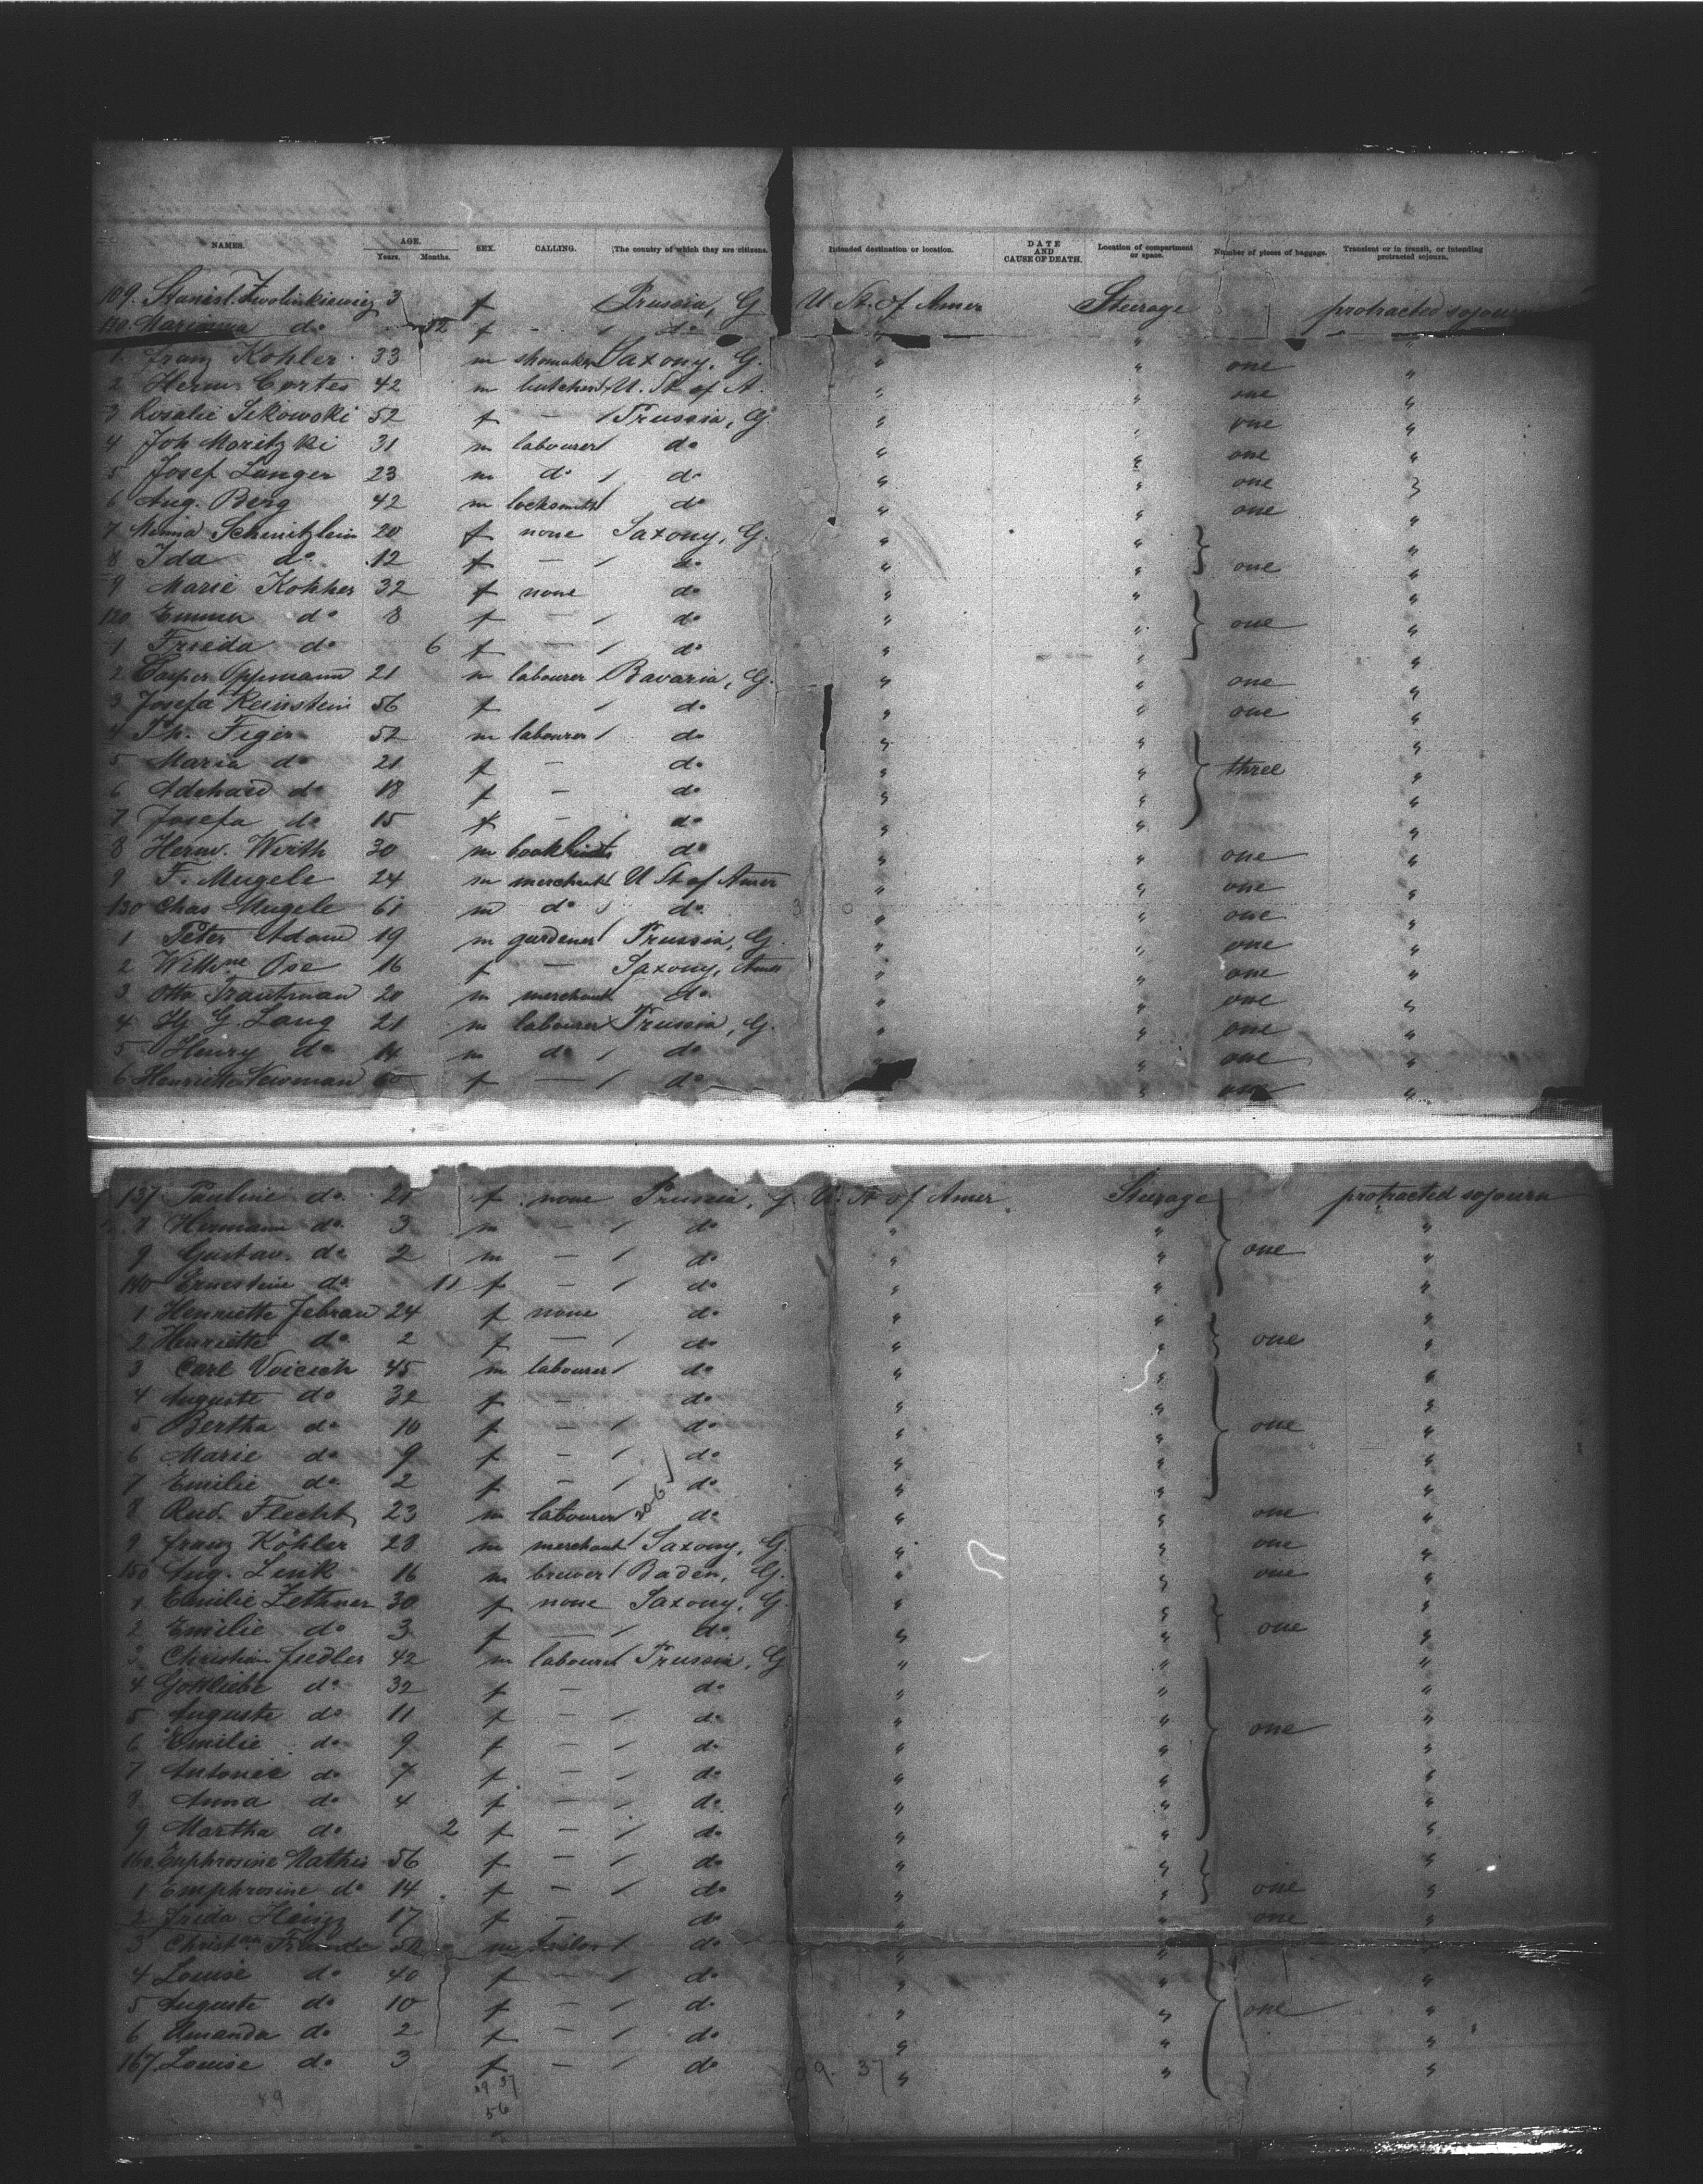 NAMES. AGE. Years. Months. SEX. CALLING. The country of which they are citizens. Intended destination or location. DATE AND CAUSE OF DEATH. Location of compartment or space. Number of pieces of baggage. Transient or in transit, or intending protracted sojourn.
109. Stanisl. Zwolinkiewicz 3 f Prussia, G U. St. of Amer Steerage protracted sojourn
110. Marianna do 12 f - / do " "
1 Franz Kohler 33 m shomaker Saxony, G. " " one "
2 Herm. Cortes 42 m butcher U. St. of A. " " one "
3 Rosalie Sikowski 52 f - / Prussia, G " " one "
4 Joh Moritzki 31 m labourer / do " " one "
5 Josef Langer 23 m do / do " " one "
6 Aug. Berg 42 m locksmith do " " one "
7 Minna Schnitzlein 20 f none Saxony, G. " " "
8 Ida do 12 f - / do " " one "
9 Marie Kohher 32 f none do " " "
120 Emma do 8 f - / do " " one "
1 Frieda do 6 f - / do " " "
2 Casper Oppmann 21 m labourer Bavaria, G. " " one "
3 Josefa Reinstein 56 f / do " " one "
4 Th. Figer 52 m labourer / do " " "
5 Maria do 21 f - do " " three "
6 do 18 f - do " " "
7 Josefa do 15 f - do " " "
8 Herm. Wirth 30 m do " " one "
9 F. Mugele 24 m merchant U St of Amer " " one "
130 Chas Mugele 61 m do / do " " one "
1 Peter Adam 19 m gardener / Prussia, G. " " one "
2 Wilhne Ose 16 f - Saxony, Amer " " one "
3 Otto Trautman 20 m merchant do " " one "
4 Hy G. Lang 21 m labourer Prussia, G. " " one "
5 Henry do 14 m do / do " " one "
6 Henriette Newman 60 f - / do " one "
137 Pauline do 21 f none Prussia, G. U. St of Amer. Steerage protracted sojourn
8 Hermann do 3 m - / do " " "
9 Gustav. do 2 m - / do " " one "
140 Ernestine do 11 f - / do " " "
1 Henriette Jebran 24 f none do " " "
2 Henriette do 2 f - / do " " one "
3 Carl Voicich 45 m labourer / do " " "
4 Auguste do 32 f - do " " "
5 Bertha do 10 f - / do " " one "
6 Marie do 9 f - / do " " "
7 Emilie do 2 f - / do " " "
8 Rud. Flecht 23 m labourer do " " one "
9 Franz Köhler 28 m merchant Saxony, G. " " one "
150 Aug. Lenk 16 m brewer / Baden, G. " " one "
1 Emilie Zethner 30 f none Saxony, G. " " "
2 Emilie do 3 f - / do " " one "
3 Christian Fiedler 42 m labourer Prussia, G " " "
4 Gottliebe do 32 f - do " " "
5 Auguste do 11 f - / do " " "
6 Emilie do 9 f - / do " " one "
7 Antonie do 7 f - / do " " "
8 Anna do 4 f - / do " " "
9 Martha do 2 f - / do " " "
160 Euphrosine Mathis 56 f - / do " " "
1 Emphrosine do 14 f - / do " " one "
2 Frida Heinz 17 f - do " " one "
3 m tailor / do " " "
4 Louise do 40 f - / do " " "
5 Auguste do 10 f - / do " " one "
6 Amanda do 2 f - / do " " "
167 Louise do 3 f - / do " " "
09. 37
56